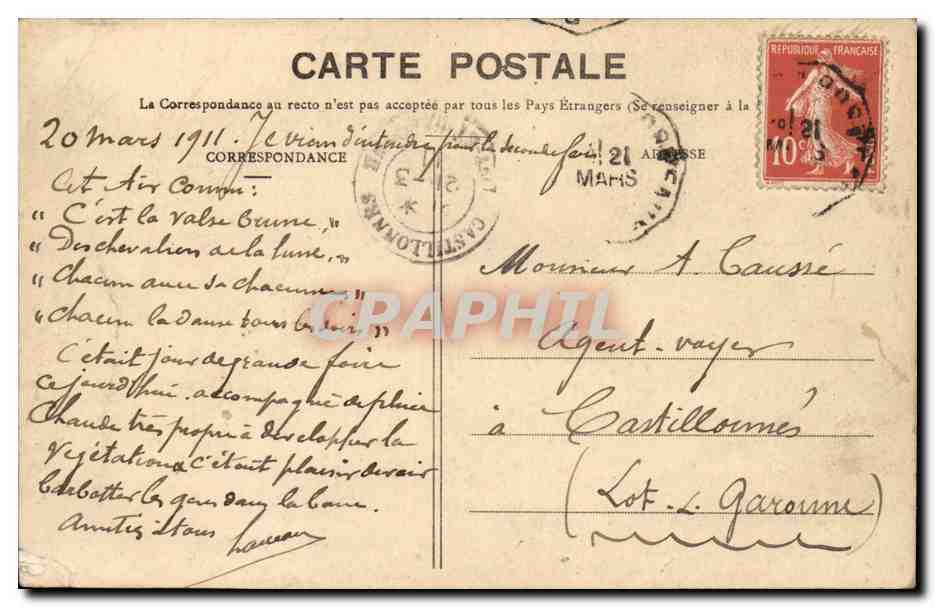 CARTE POSTALE
La Correspondance au recto n'est pas acceptée par tous les Pays Étrangers (Se renseigner à la
20 mars 1911. Je viens d'entendre pour la seconde fois
CORRESPONDANCE
ADRESSE
Cet Air Connu:
"C'est la Valse brune,"
"Des chevaliers de la lune,"
"Chacun avec sa chacune"
"Chacun la danse tous les soirs"
C'était jour de grande foire
ce jourd'hui accompagné de pluie
Chaude très propre à développer la
Végétation c'était plaisir de voir
barbotter les gens dans la boue.
Amitiés à tous
Monsieur A. Caussé
Agent-voyer
à Castillonnés
(Lot-&-Garonne)
REPUBLIQUE FRANÇAISE
10 c
21
MARS
CASTILLONNES
CPAPHIL